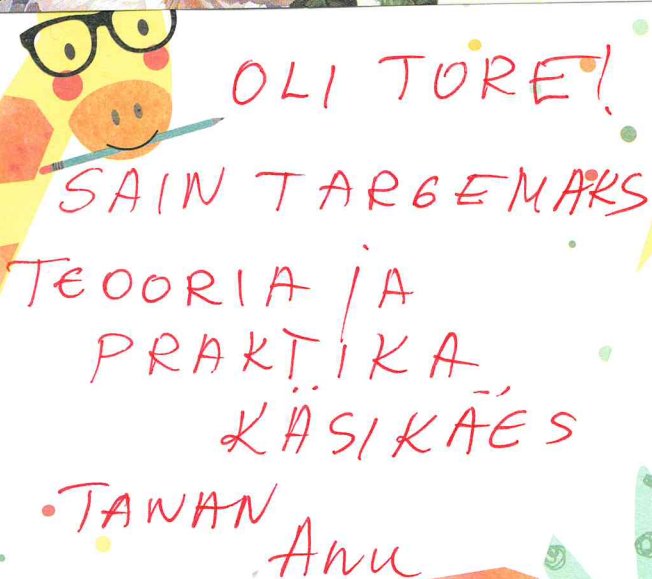 OLI TORE!
SAIN TARGEMAKS
TEOORIA JA
PRAKTIKA
KÄSIKÄES
TANAN
Anu